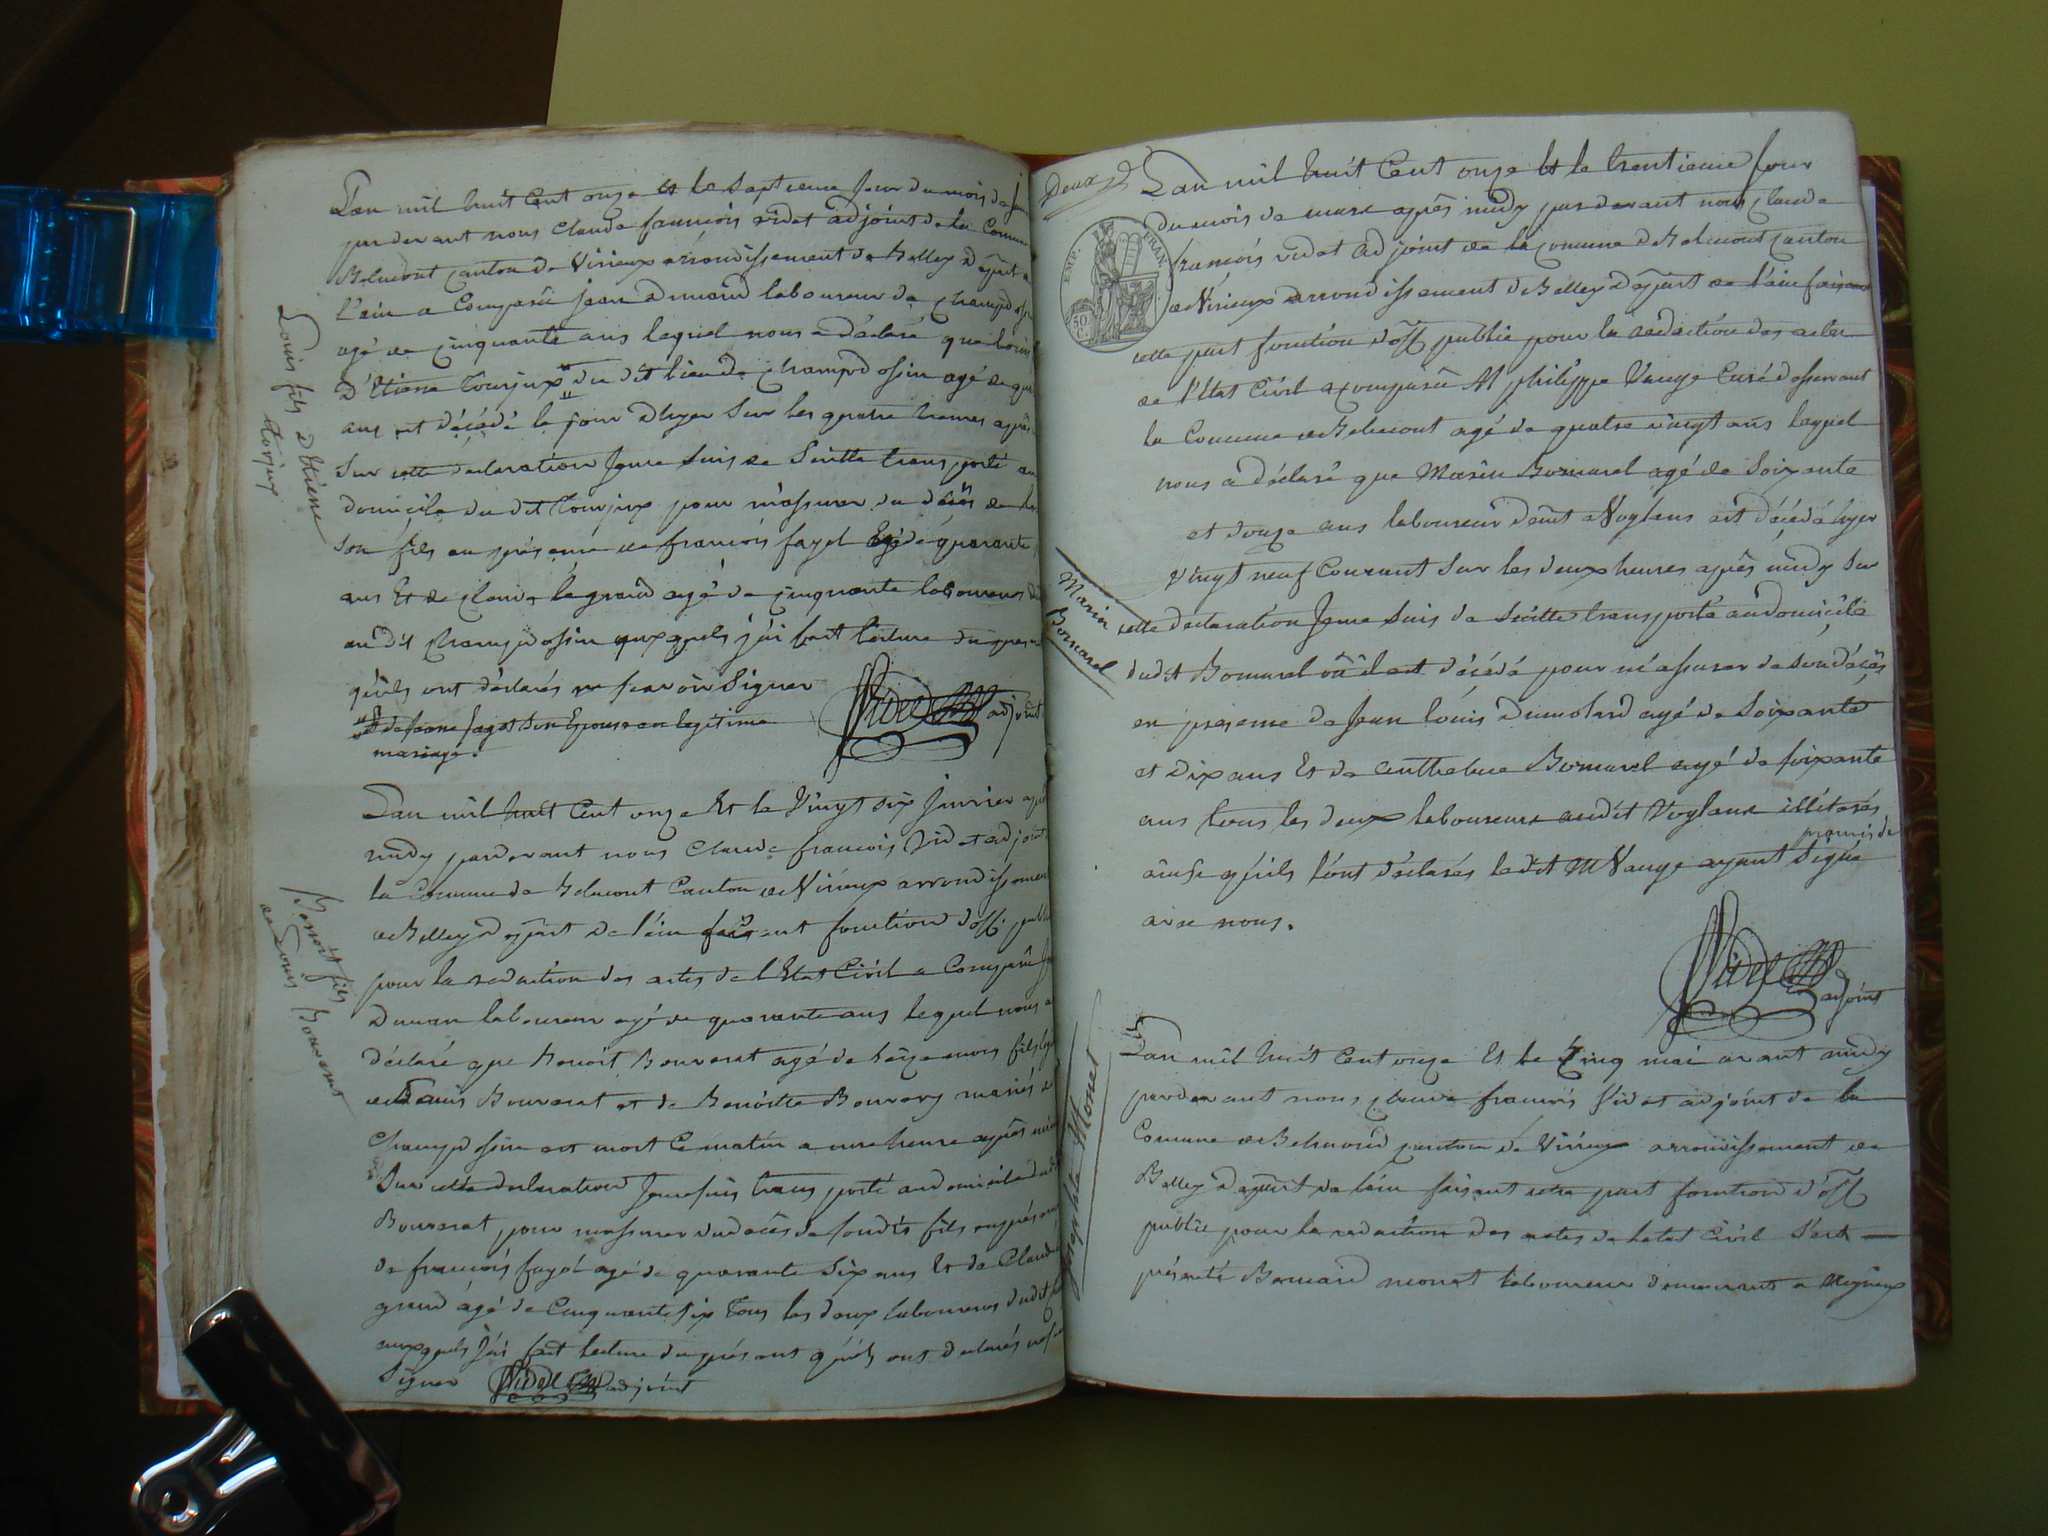 Louis fils d'Etiene
torjux
L'an mil huit Cent onze et le septieme Jour du mois de
par devant nous Claude francois videt adjoint de la Comune
Belmont canton de Virieux arrondissement de Belley dépjart
l'ain a Comparû jean Dumard laboureur de champdossin
agé de cinquante ans lequel nous a déclaré que Louis
d'Etiene Tourjux du dit lieu de champdossin agé de
ans est décédé le jour d'hyer sur les quatre heures après
Sur cette declaration Je me suis de Suitte transporté au
domicile du dit Tourjux pour m'assurer du décès de
son fils en présence de francois fayet agé de quarante
ans Et de Claude legrand agé de cinquante laboureurs
au dit Champdossin auxquels j'ai fait lecture du present
qu'ils ont déclarés ne savoir Signer
Et de jeane fayet son Epouse en legitime
mariage.
Videt adjoint
Benoit fils
de Louis Bouverat
L'an mil huit Cent onze Et le Vingt six Janvier
midy pardevant nous Claude francois Videt adjoint
la Commune de Belmont Canton de Virieux arrondissement
de Belley dépjart de l'ain faisant fonction d'off. public
pour la redaction des actes de l'Etat Civil a Comparû
laboureur agé de quarante ans lequel nous a
déclaré que Benoit Bouverat agé de seize mois fils
de Louis Bouverat et de Benoitte Bouvery mariés a
Champdossin est mort Ce matin a une heure après
Sur cette declaration Je me suis transporté au domicile
Bouverat, pour m'assurer du décès de son dit fils en présence
de francois fayet agé de quarante Six ans Et de Claude
grand âgé de Cinquante six Tous les deux laboureurs dudit
auxquels J'ai fait lecture du présent qu'ils ont declarés
Signer Videt adjoint
Deux
EMP. FRAN.
50 C.
L'an mil huit Cent onze Et le trentieme Jour
du mois de mars après midy par devant nous Claude
francois videt adjoint de la Comune de Belmont Canton
de Virieux arrondissement de Belley dépjart de l'ain faisant
cette part fonction d'off public pour la redaction des actes
de l'Etat Civil a comparû M philippe Vauge Curé desservant
la Commune de Belmont agé de quatre vingt ans lequel
nous a déclaré que Marin Bornarel agé de Soixante
et douze ans laboureur demt a Voglans est décédé hyer
Vingt neuf Courant sur les deux heures après midy Sur
Marin
Bornarel
cette declaration Je me suis de Suitte transporté au domicile
dudit Bornarel où il est décédé pour m'assurer de son décès
en présence de Jean louis Dumolard agé de Soixante
et Dix ans Et de anthelme Bornarel agé de soixante
ans tous les deux laboureurs audit Voglans illiterés
ainsi qu'ils l'ont déclarés le dit M Vauge ayant Signé
avec nous.
Videt adjoint
Monet
L'an mil huit Cent onze Et le Cinq mai avant midy
par devant nous Claude francois Videt adjoint de la
Comune de Belmont canton de Virieux arrondissement de
Belley dépjart de l'ain faisant cette part fonction d'off
public pour la redaction des actes de l'etat Civil s'est
présenté Bernard monet laboureur demeurant a